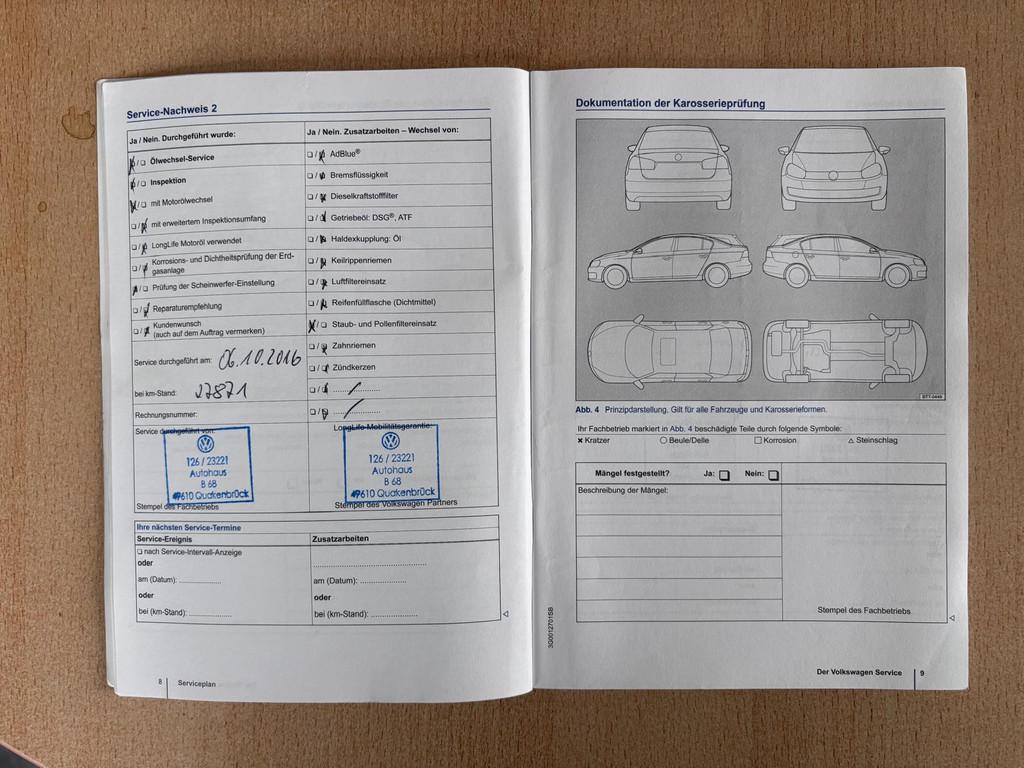 Service-Nachweis 2
Ja / Nein. Durchgeführt wurde:
❏ / ❏ Ölwechsel-Service
❏ / ❏ Inspektion
❏ / ❏ mit Motorölwechsel
❏ / ❏ mit erweitertem Inspektionsumfang
❏ / ❏ LongLife Motoröl verwendet
❏ / ❏ Korrosions- und Dichtheitsprüfung der Erd-
gasanlage
❏ / ❏ Prüfung der Scheinwerfer-Einstellung
❏ / ❏ Reparaturempfehlung
❏ / ❏ Kundenwunsch
(auch auf dem Auftrag vermerken)
Service durchgeführt am: 06.10.2016
bei km-Stand: 27871
Rechnungsnummer:
Service durchgeführt von:
126 / 23221
Autohaus
B 68
49610 Quakenbrück
Stempel des Fachbetriebs
Ja / Nein. Zusatzarbeiten – Wechsel von:
❏ / ❏ AdBlue®
❏ / ❏ Bremsflüssigkeit
❏ / ❏ Dieselkraftstofffilter
❏ / ❏ Getriebeöl: DSG®, ATF
❏ / ❏ Haldexkupplung: Öl
❏ / ❏ Keilrippenriemen
❏ / ❏ Luftfiltereinsatz
❏ / ❏ Reifenfüllflasche (Dichtmittel)
❏ / ❏ Staub- und Pollenfiltereinsatz
❏ / ❏ Zahnriemen
❏ / ❏ Zündkerzen
❏ / ❏ ....................
❏ / ❏ ....................
LongLife-Mobilitätsgarantie:
126 / 23221
Autohaus
B 68
49610 Quakenbrück
Stempel des Volkswagen Partners
Ihre nächsten Service-Termine
Service-Ereignis
❏ nach Service-Intervall-Anzeige
oder
am (Datum): ..............
oder
bei (km-Stand): ..............
Zusatzarbeiten
......................................
am (Datum): ...............
oder
bei (km-Stand): ...............
8 Serviceplan
Dokumentation der Karosserieprüfung
BTT-0449
Abb. 4 Prinzipdarstellung. Gilt für alle Fahrzeuge und Karosserieformen.
Ihr Fachbetrieb markiert in Abb. 4 beschädigte Teile durch folgende Symbole:
✖ Kratzer ○ Beule/Delle □ Korrosion △ Steinschlag
Mängel festgestellt? Ja: ❏ Nein: ❏
Beschreibung der Mängel:
Stempel des Fachbetriebs
3G0012701SB
Der Volkswagen Service 9